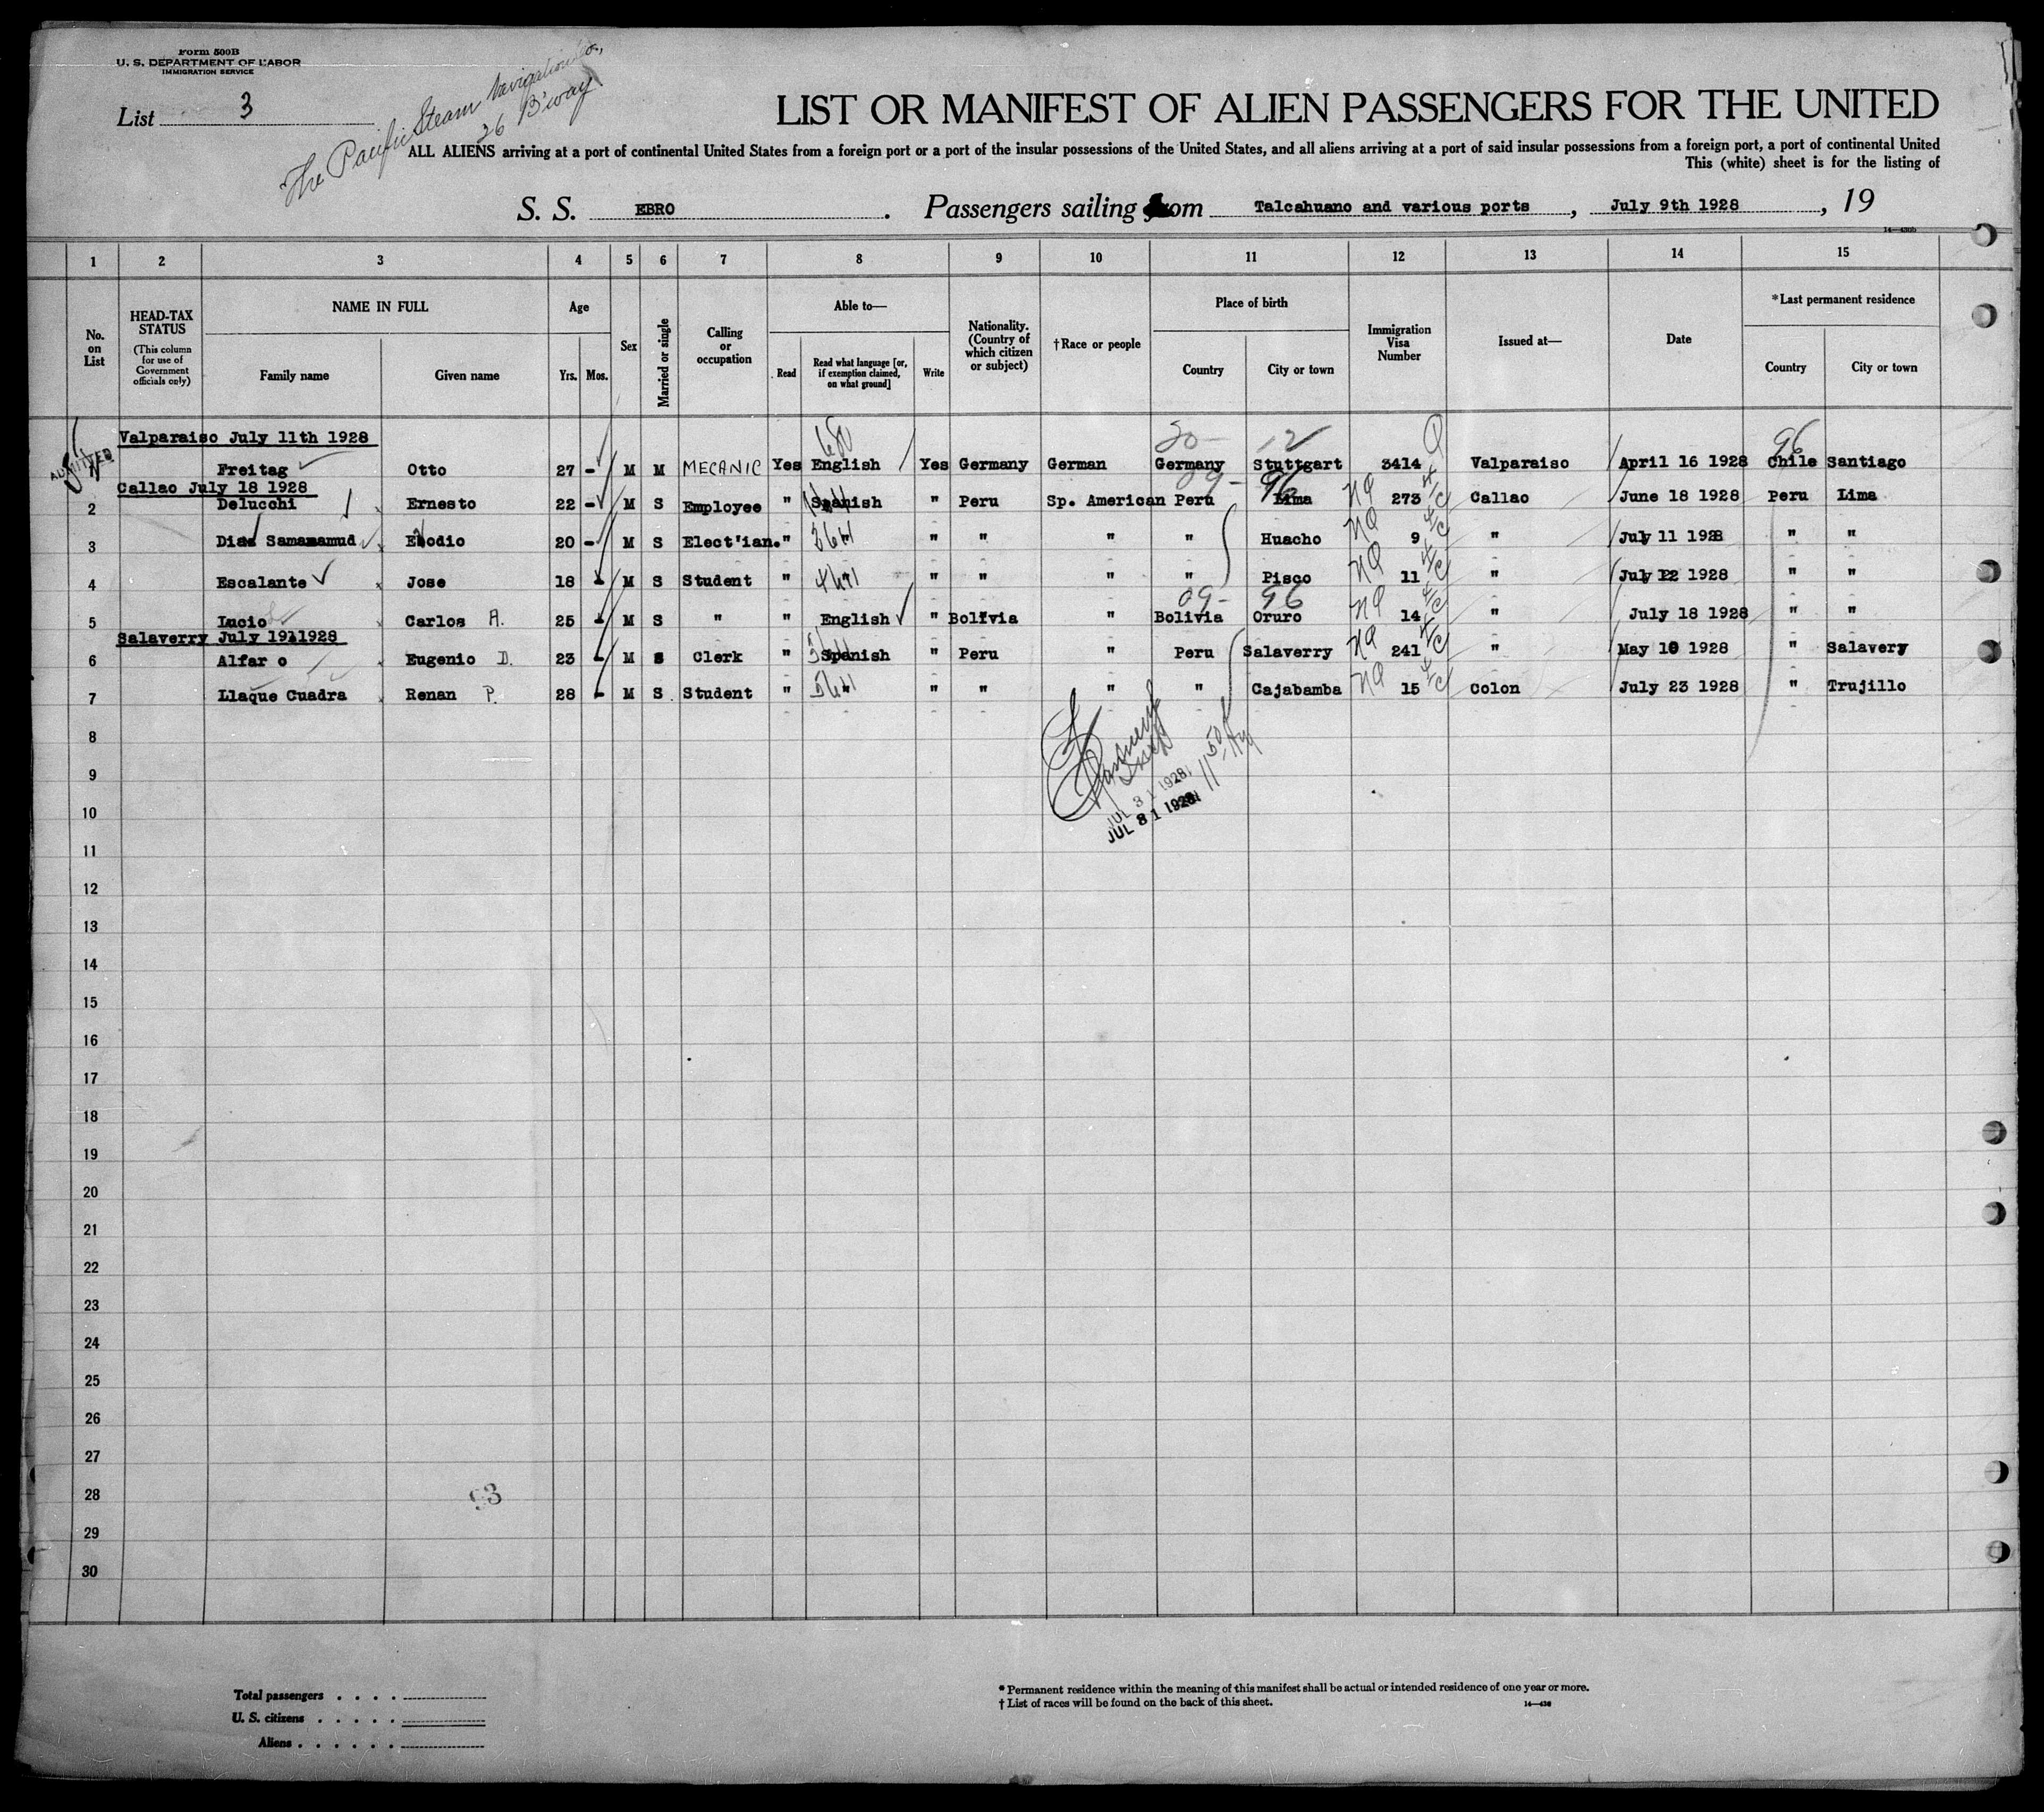 Form 500B
U. S. DEPARTMENT OF LABOR
IMMIGRATION SERVICE
List 3
The Pacific Steam Navigation Co.,
26 B'way
LIST OR MANIFEST OF ALIEN PASSENGERS FOR THE UNITED
ALL ALIENS arriving at a port of continental United States from a foreign port or a port of the insular possessions of the United States, and all aliens arriving at a port of said insular possessions from a foreign port, a port of continental United
This (white) sheet is for the listing of
S. S. EBRO . Passengers sailing from Talcahuano and various ports , July 9th 1928 , 19
14—430b
1 2 3 4 5 6 7 8 9 10 11 12 13 14 15
No. on List
HEAD-TAX STATUS
(This column for use of Government officials only)
NAME IN FULL
Family name Given name
Age
Yrs. Mos.
Sex
Married or single
Calling or occupation
Able to—
Read Read what language [or, if exemption claimed, on what ground] Write
Nationality. (Country of which citizen or subject)
†Race or people
Place of birth
Country City or town
Immigration Visa Number
Issued at—
Date
*Last permanent residence
Country City or town
Valparaiso July 11th 1928
ADMITTED Freitag Otto 27 - M M MECANIC Yes English Yes Germany German Germany Stuttgart 3414 Valparaiso April 16 1928 Chile Santiago
Callao July 18 1928
2 Delucchi Ernesto 22 - M S Employee " Spanish " Peru Sp. American Peru Lima NQ 273 Callao June 18 1928 Peru Lima
3 Samamamud 20 - M S Elect'ian. " " " " " Huacho NQ 9 " July 11 1928 " "
4 Escalante Jose 18 - M S Student " " " " " Pisco NQ 11 " July 12 1928 " "
5 Lucio Carlos A. 25 - M S " " English " Bolivia " Bolivia Oruro NQ 14 " July 18 1928 " "
Salaverry July 19 1928
6 Alfar o Eugenio D. 23 - M S Clerk " Spanish " Peru " Peru Salaverry NQ 241 " May 10 1928 " Salavery
7 Llaque Cuadra Renan P. 28 - M S Student " " " " " Cajabamba NQ 15 Colon July 23 1928 " Trujillo
8
JUL 31 1928
JUL 31 1928
9
10
11
12
13
14
15
16
17
18
19
20
21
22
23
24
25
26
27
28
93
29
30
Total passengers
U. S. citizens
Aliens
* Permanent residence within the meaning of this manifest shall be actual or intended residence of one year or more.
† List of races will be found on the back of this sheet.
14—430